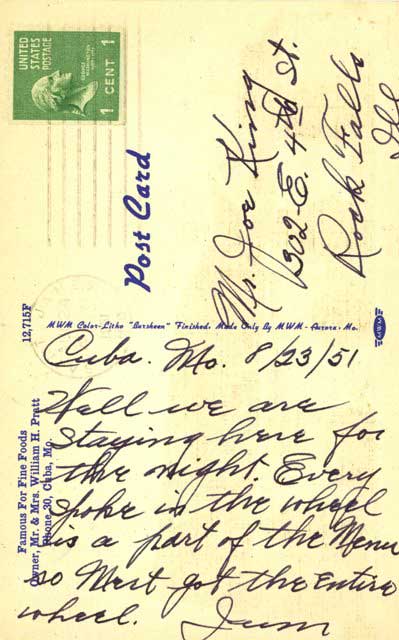 UNITED
STATES
POSTAGE
1 CENT 1
Post Card
Mr. Joe King
1202 E. 4th St.
Rock Falls
Ill
12,715F
MWM Color-Litho "Bursheen" Finished. Made Only By MWM - Aurora, Mo.
MWM
Famous For Fine Foods
Owner, Mr. & Mrs. William H. Pratt
Phone 30, Cuba, Mo.
Cuba. Mo. 8/23/51
Well we are
staying here for
the night. Every
spoke in the wheel
is a part of the Menu
so Mert got the Entire
wheel.